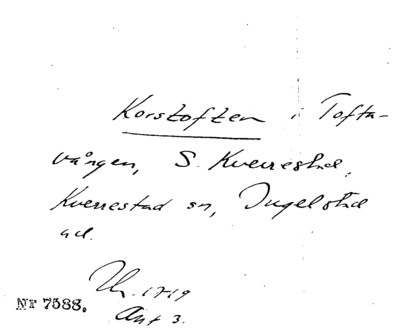 Korstoften i Tofta-
vången, S. Kverrestad,
Kverrestad sn, Ingelstad
hd.
1719
Akt 3.
Nr 7588.